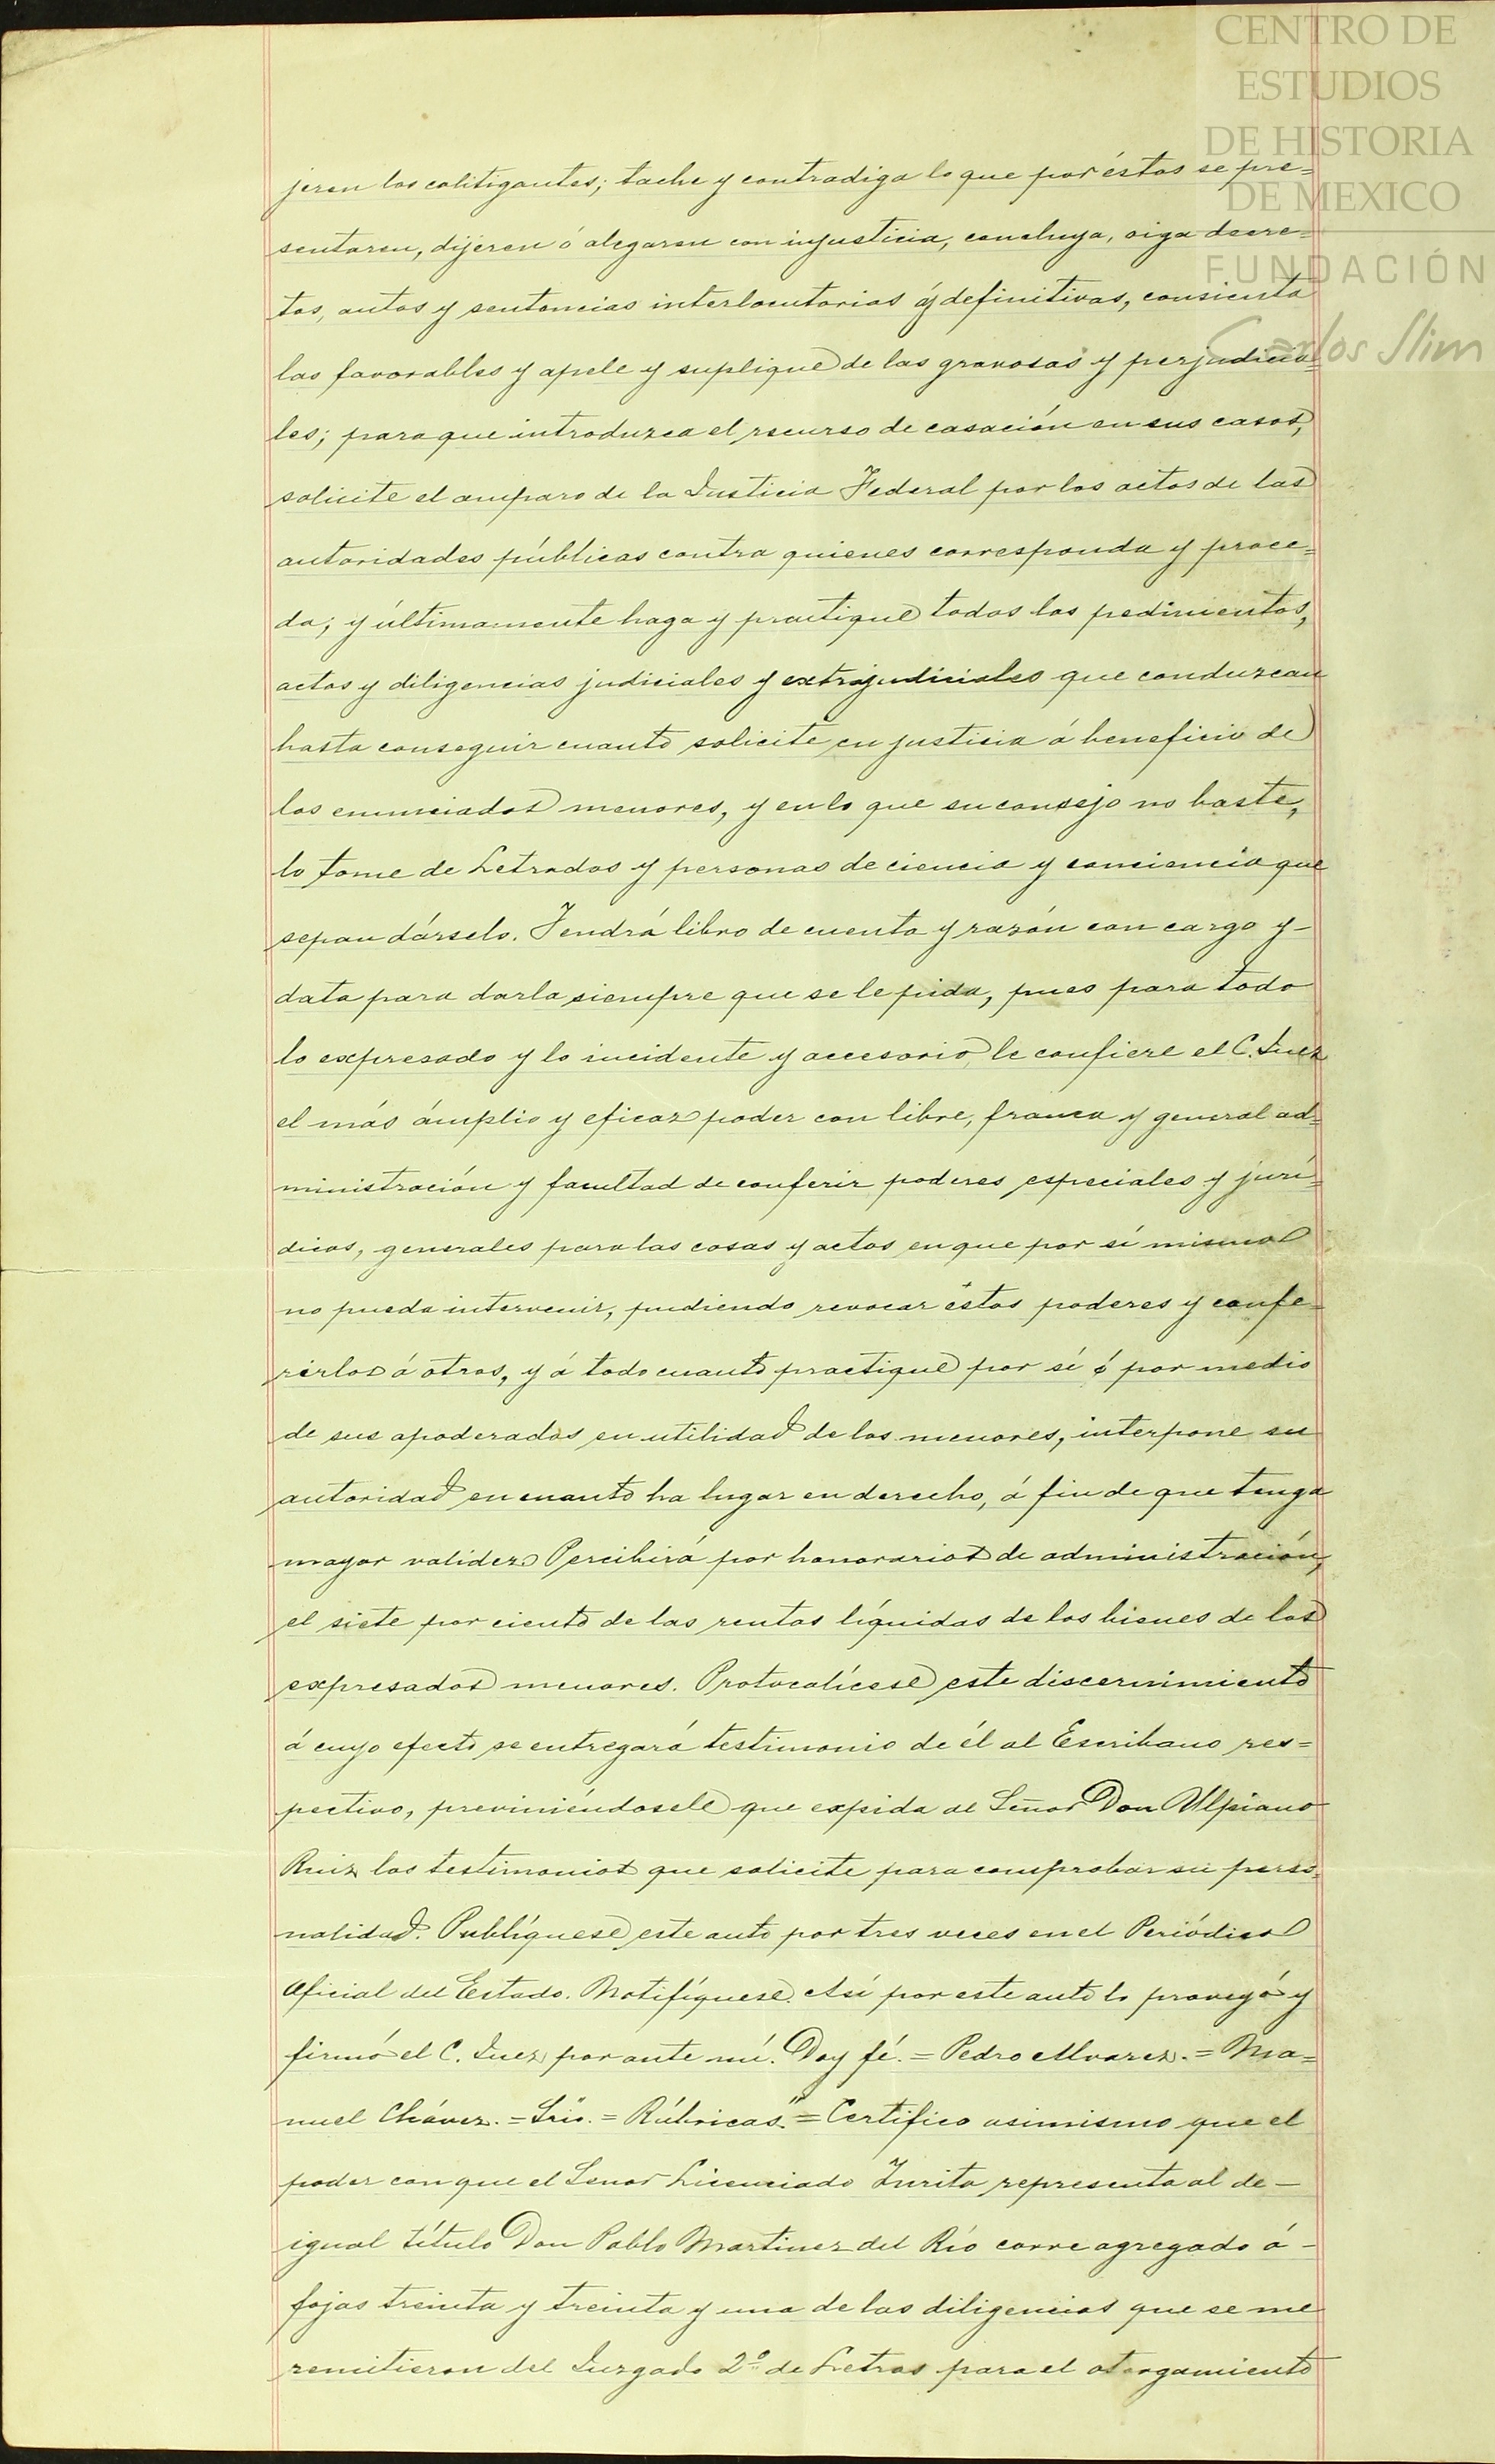 CENTRO DE
ESTUDIOS
DE HISTORIA
DE MEXICO
FUNDACIÓN
Carlos Slim
jeren los colitigantes; tache y contradiga lo que por éstos se pre=
sentaren, dijeren ó alegaren con injusticia, concluya, oiga decre=
tos, autos y sentencias interlocutorias y definitivas, consienta
las favorables y apele y suplique de las gravosas y perjudicia=
les; para que introduzca el recurso de casación en sus casos,
solicite el amparo de la Justicia Federal por los actos de las
autoridades públicas contra quienes corresponda y proce=
da; y últimamente haga y practique todos los pedimentos,
actos y diligencias judiciales y extrajudiciales que conduzcan
hasta conseguir cuanto solicite en justicia á beneficio de
los enunciados menores, y en lo que su consejo no baste,
lo tome de Letrados y personas de ciencia y conciencia que
sepan dárselo. Tendrá libro de cuenta y razón con cargo y-
data para darla siempre que se le pida, pues para todo
lo expresado y lo incidente y accesorio, le confiere el C. Juez
el más ámplio y eficaz poder con libre, franca y general ad=
ministración y facultad de conferir poderes especiales y jurí=
dicos, generales para las cosas y actos en que por sí mismo
no pueda intervenir, pudiendo revocar éstos poderes y confe=
rirlos á otros, y á todo cuanto practique por sí ó por medio
de sus apoderados en utilidad de los menores, interpone su
autoridad en cuanto ha lugar en derecho, á fin de que tenga
mayor validez. Percibirá por honorarios de administración,
el siete por ciento de las rentas líquidas de los bienes de los
expresados menores. Protocolícese este discernimiento
á cuyo efecto se entregará testimonio de él al Escribano res=
pectivo, previniéndosele que expida al Señor Don Ulpiano
Ruiz los testimonios que solicite para comprobar su perso=
nalidad. Publíquese este auto por tres veces en el Periódico
Oficial del Estado. Notifíquese. Así por este auto lo proveyó y
firmó el C. Juez por ante mí. Doy fé. = Pedro Alvarez. = Ma=
nuel Chávez. = Srio. = Rúbricas." = Certifico asimismo que el
poder con que el Señor Licenciado Zurita representa al de -
igual título Don Pablo Martinez del Río corre agregado á -
fojas treinta y treinta y una de las diligencias que se me
remitieron del Juzgado 2º de Letras para el otorgamiento